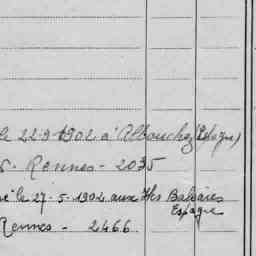 le 22-9-1902 à Albouchez (Pologne)
S. Rennes - 2035
né le 27-5-1902 aux Iles Baléares
Espagne
Rennes - 2466.